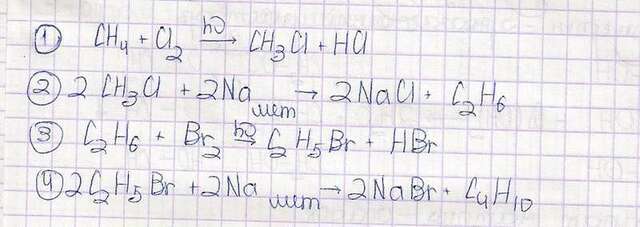 ① CH₄ + Cl₂ →hν CH₃Cl + HCl
② 2 CH₃Cl + 2Na мет → 2NaCl + C₂H₆
③ C₂H₆ + Br₂ →hν C₂H₅Br + HBr
④ 2C₂H₅Br + 2Na мет → 2NaBr + C₄H₁₀